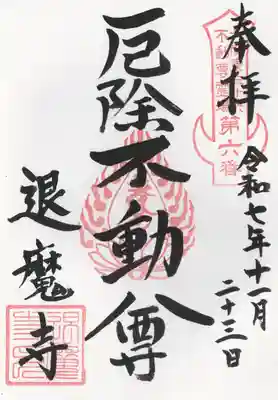 奉拝
第六番
令和七年十一月
二十三日
厄除不動尊
退魔寺